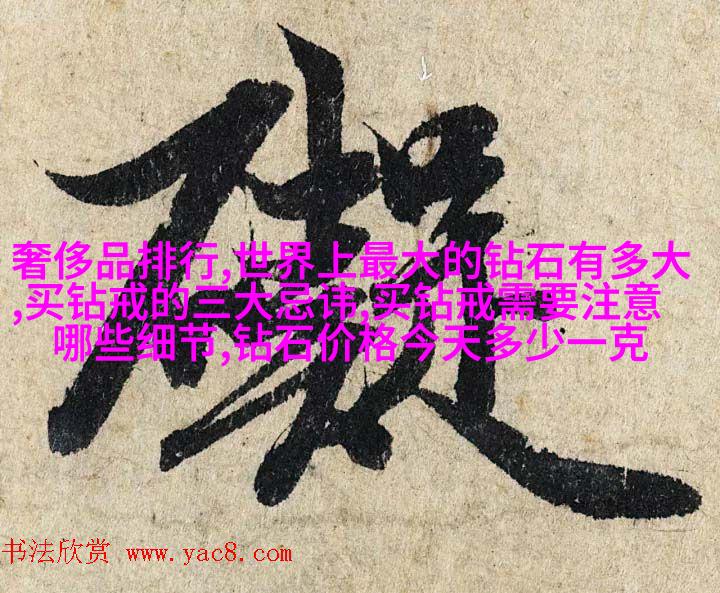 奢侈品排行,世界上最大的钻石有多大
,买钻戒的三大忌讳,买钻戒需要注意
哪些细节,钻石价格今天多少一克
书法欣赏 www.yac8.com